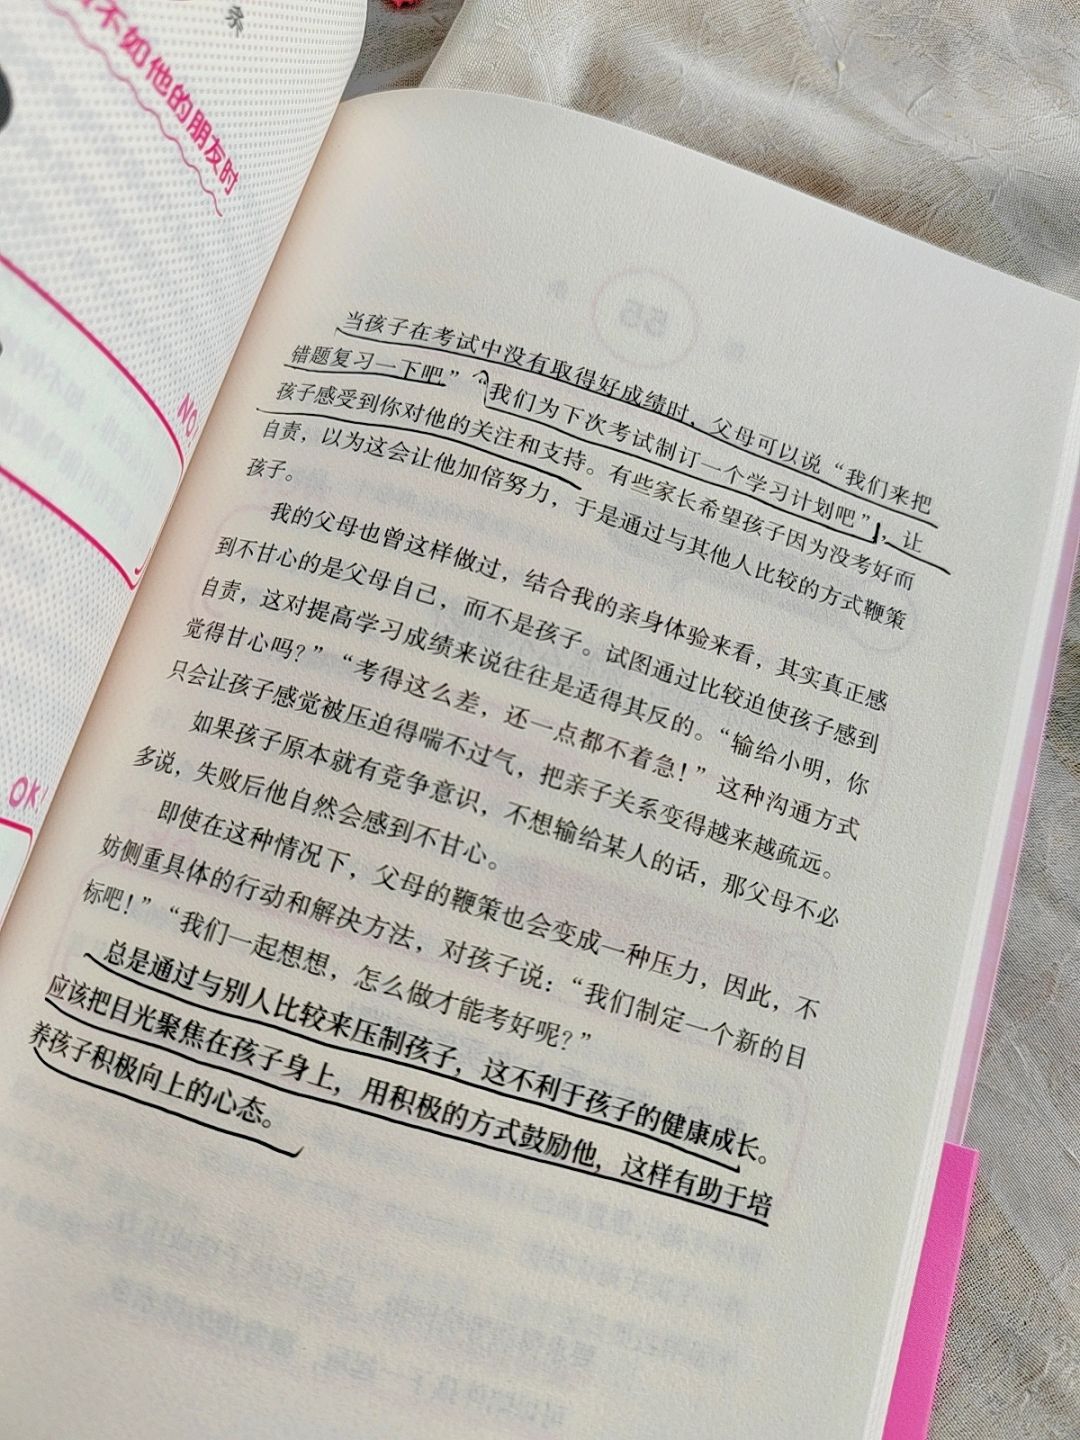 不如他的朋友时
NO!
OK!
当孩子在考试中没有取得好成绩时，父母可以说“我们来把
错题复习一下吧”“我们为下次考试制订一个学习计划吧”，让
孩子感受到你对他的关注和支持。有些家长希望孩子因为没考好而
自责，以为这会让他加倍努力，于是通过与其他人比较的方式鞭策
孩子。
我的父母也曾这样做过，结合我的亲身体验来看，其实真正感
到不甘心的是父母自己，而不是孩子。试图通过比较迫使孩子感到
自责，这对提高学习成绩来说往往是适得其反的。“输给小明，你
觉得甘心吗？”“考得这么差，还一点都不着急！”这种沟通方式
只会让孩子感觉被压迫得喘不过气，把亲子关系变得越来越疏远。
如果孩子原本就有竞争意识，不想输给某人的话，那父母不必
多说，失败后他自然会感到不甘心。
即使在这种情况下，父母的鞭策也会变成一种压力，因此，不
妨侧重具体的行动和解决方法，对孩子说：“我们制定一个新的目
标吧！”“我们一起想想，怎么做才能考好呢？”
总是通过与别人比较来压制孩子，这不利于孩子的健康成长。
应该把目光聚焦在孩子身上，用积极的方式鼓励他，这样有助于培
养孩子积极向上的心态。